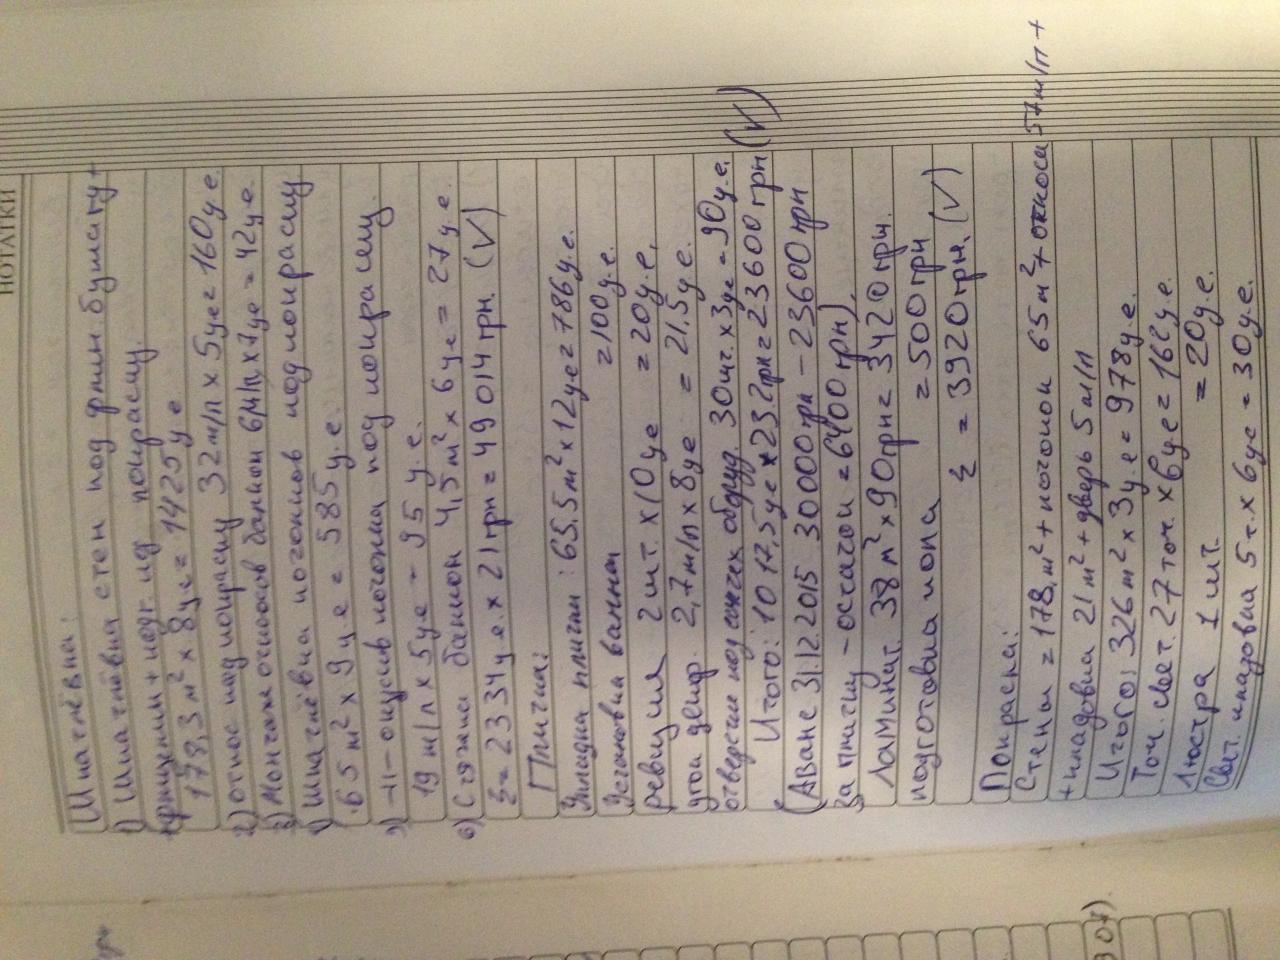 НОТАТКИ
Шпатлёвка:
1) Шпатлёвка стен под флиз. бумагу +
+ флизелин + подг. под покраску.
178,3 м² х 8 у.е = 1425 у е
2) откос под покраску 32 м/п х 5 у.е = 160 у.е
3) Монтаж откосов балкон 6 м/п х 7 у.е = 42 у.е.
4) Шпатлёвка потолков под покраску
65 м² х 9 у е = 585 у. е.
5) -//- откосов потолка под покраску.
19 м/п х 5 у.е = 95 у. е.
6) Стяжка балкон 4,5 м² х 6 у.е = 27 у. е.
Σ = 2334 у.е. х 21 грн = 49 014 грн. (V)
Плитка:
Укладка плитки: 65,5 м² х 12 у.е = 786 у.е.
Установка ванны = 100 у. е.
ревизия 2 шт. х 10 у.е = 20 у. е,
угол 2,7 м/п х 8 у.е = 21,5 у е.
отверстие под сантех. оборуд. 30 шт. х 3 у.е = 90 у. е.
Итого: 1017,5 у.е х 23,2 грн = 23600 грн (V)
(Аванс 31.12.2015 30 000 грн - 23 600 грн
за плитку - остаток = 6400 грн).
Ламинат. 38 м² х 90 грн = 3420 грн.
подготовка пола = 500 грн
Σ = 3920 грн. (V)
Покраска:
Стены = 178, м² + потолок 65 м² + откоса 57 м/п +
+ кладовка 21 м² + дверь 5 м/п
Итого: 326 м² х 3 у. е = 978 у. е.
Точ. свет. 27 точ. х 6 у.е = 162 у.е
Люстра 1 шт. = 20 у. е.
Свет. кладовка 5 т. х 6 у.е = 30 у.е.